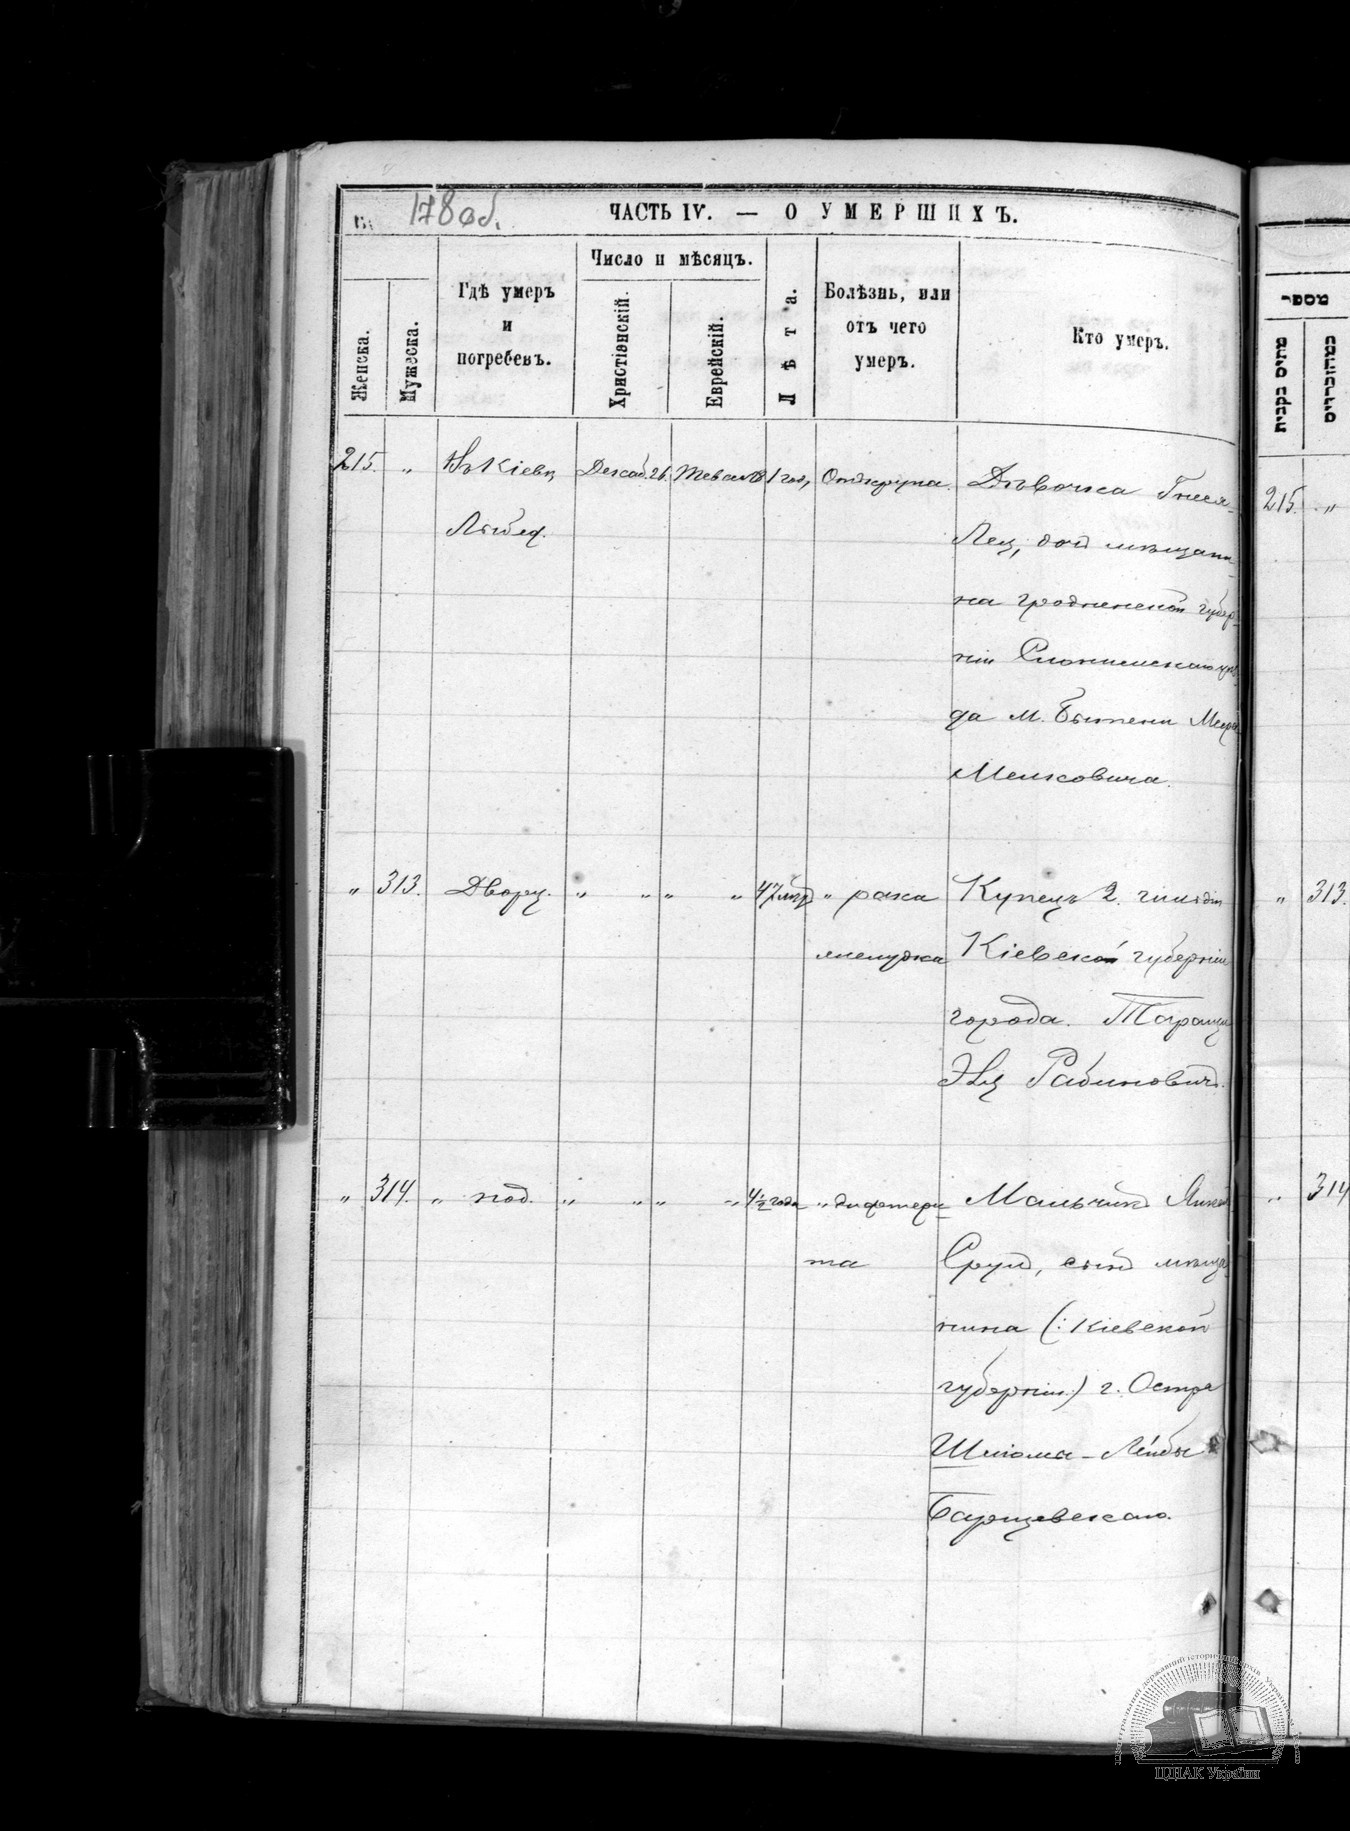 178об.
ЧАСТЬ IV. — О УМЕРШИХЪ.
Женска.
Мужеска.
Гдѣ умеръ
и
погребенъ.
Число и мѣсяцъ.
Христіянскій.
Еврейскій.
Лѣта.
Болѣзнь, или
отъ чего
умеръ.
Кто умеръ.
215. „ Въ Кіевѣ Декаб. 26. 1 год, Отъ крупа. Дѣвочка
Лыбед.
Лея, доч мѣщани-
на гродненской губер-
ніи Слонимскаго уѣз-
да м. Бытени
Мешковича.
„ 313. Дворц. „ „ „ „ 47 лѣт „ рака Купецъ 2. гильдіи
желудка Кіевской губерніи
города Таращи
Рабиновичъ.
„ 314. „ под. „ „ „ „ 4½ года „ дифтери-
та
Мальчикъ
Сруль, сынъ мѣща-
нина (: Кіевской
губерніи :) г. Остра
Шліома-Лейбы
Барщевскаго.
מספר
215. „
„ 313.
„ 314
ЦДІАК України